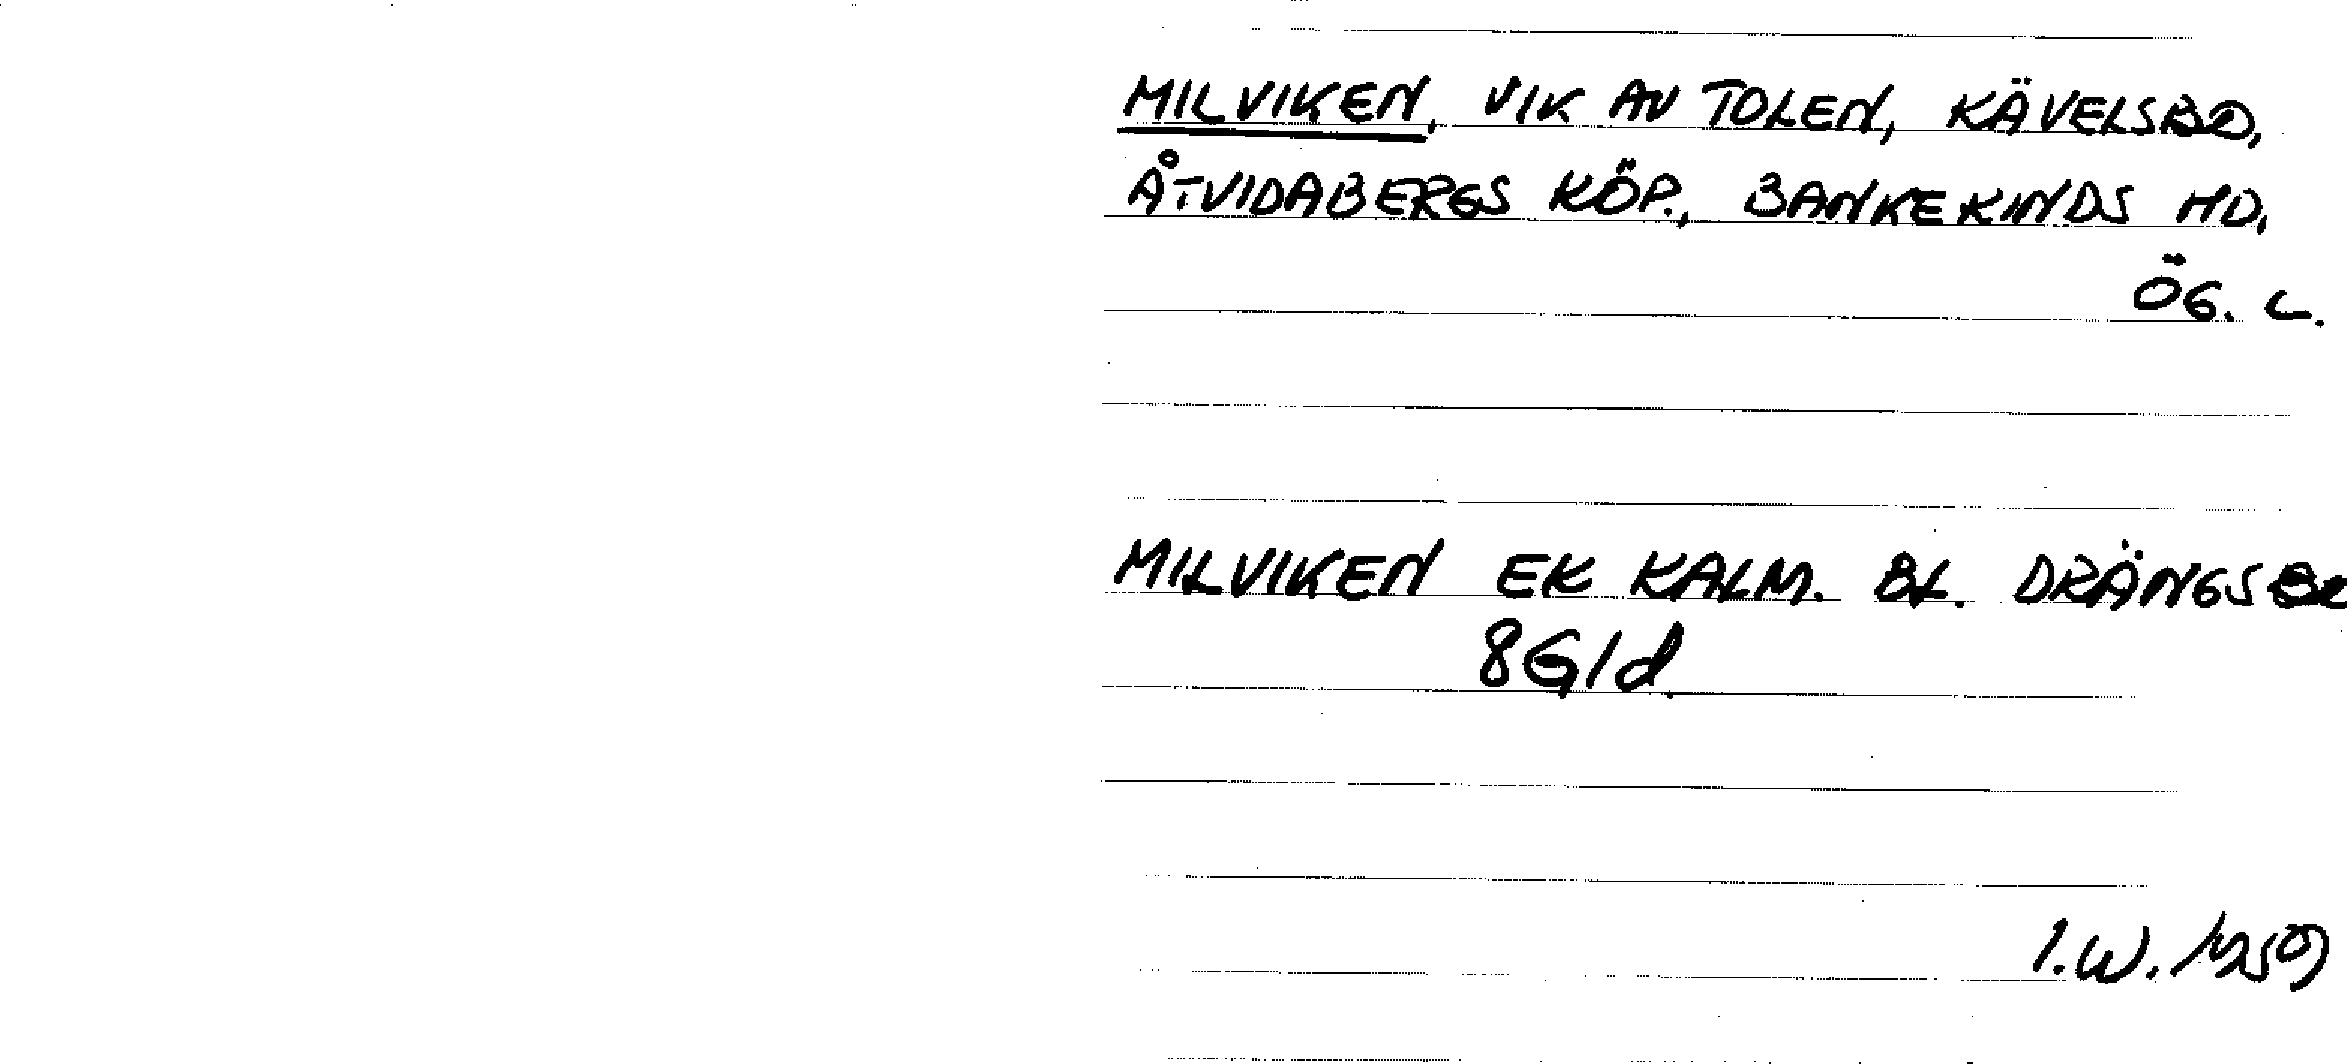 MILVIKEN, VIK AV TOLEN, KÄVELSBO,
ÅTVIDABERGS KÖP., BANKEKINDS HD,
ÖG. L.
MILVIKEN EK KALM. BL. DRÄNGSBO
8G1d
I.W. 1959